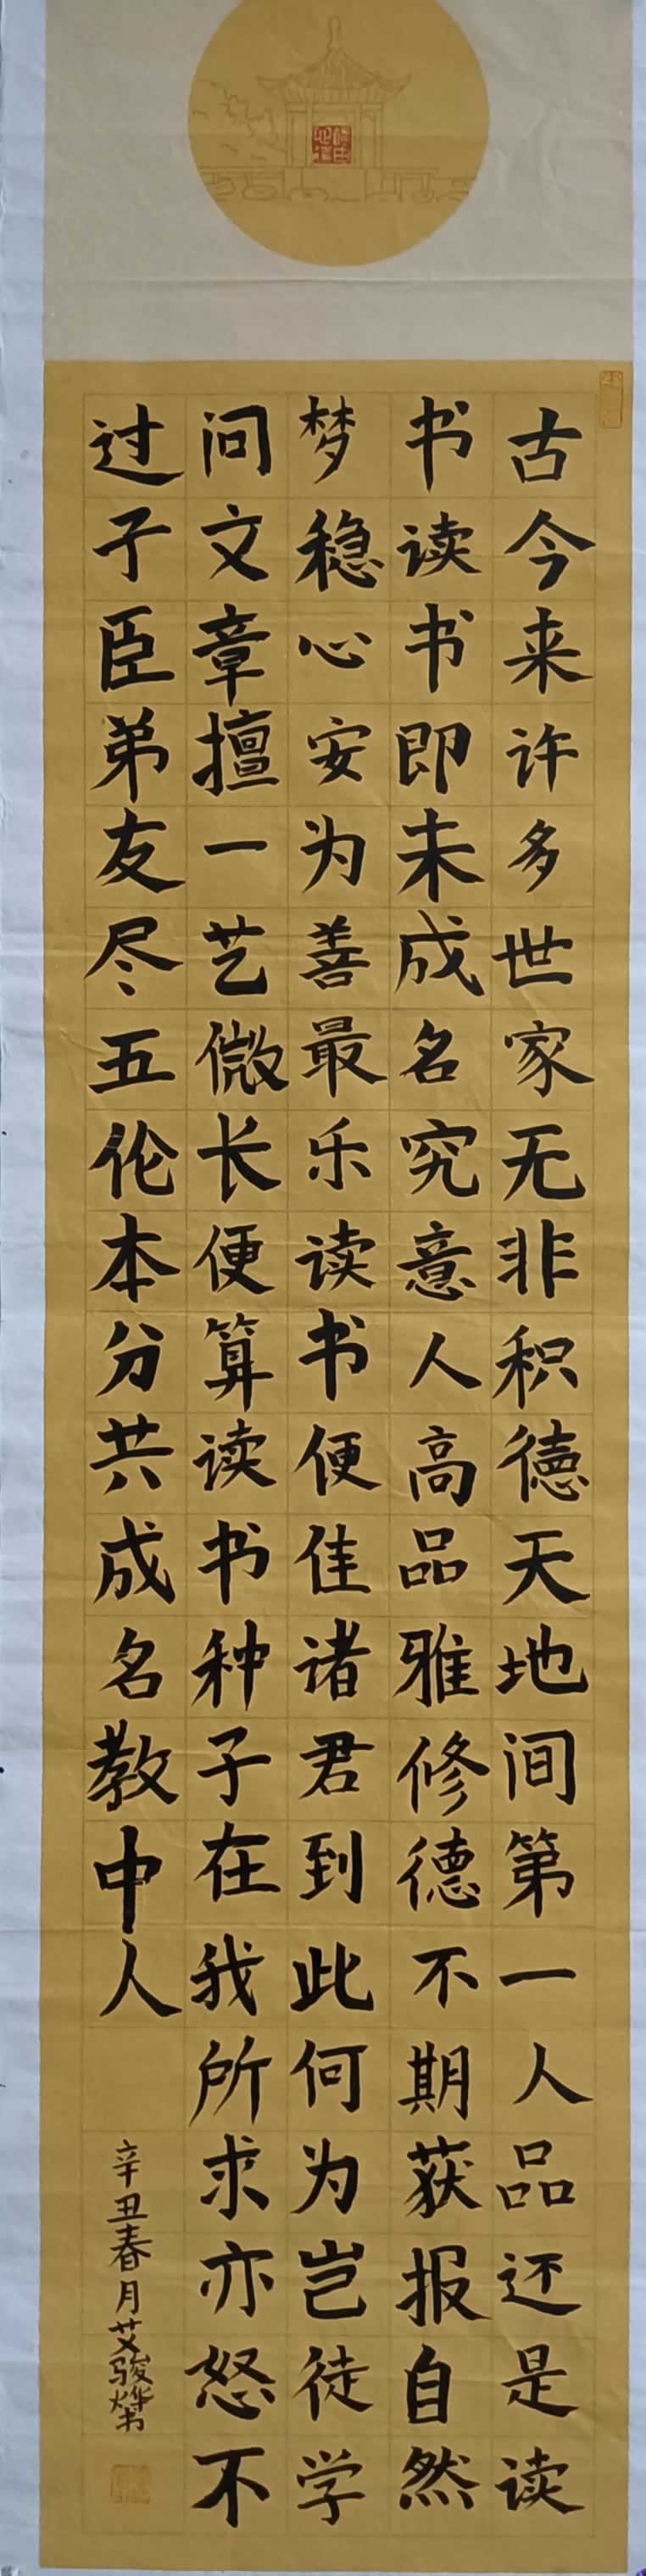 古今来许多世家无非积德天地间第一人品还是读
书读书即未成名究意人高品雅修德不期获报自然
梦稳心安为善最乐读书便佳诸君到此何为岂徒学
问文章擅一艺微长便算读书种子在我所求亦怒不
过子臣弟友尽五伦本分共成名教中人
辛丑春月艾骏烨书